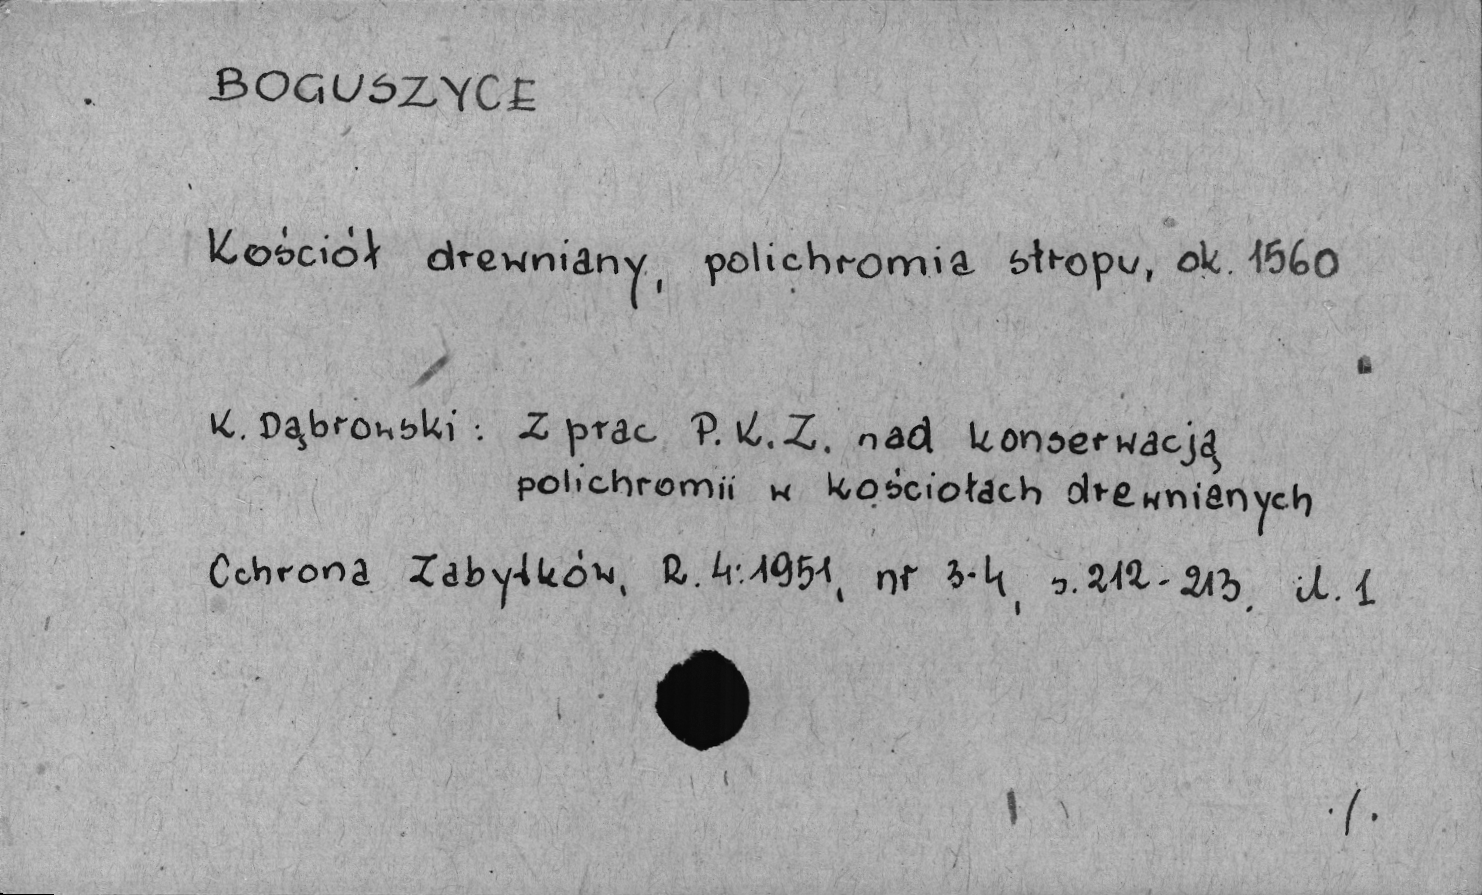 BOGUSZYCE
Kościół drewniany, polichromia stropu, ok. 1560
K. Dąbrowski: Z prac P.K.Z. nad konserwacją
polichromii w kościołach drewnianych
Ochrona Zabytków, R. 4:1951, nr 3-4, s. 212-213, il. 1
./.